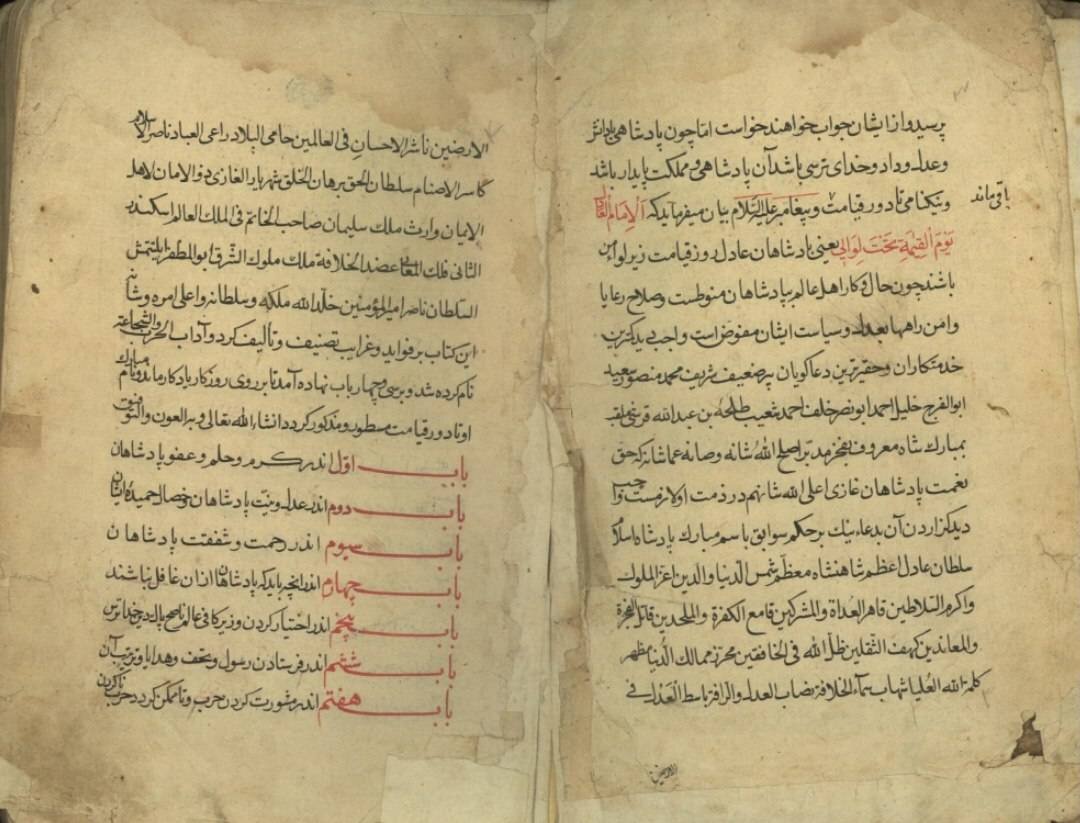 پرسید و از ایشان جواب خواهند خواست اما چون پادشاهی با دانش
و عدل و داد و خدای ترسی باشد آن پادشاهی و مملکت پایدار باشد
باقی ماند
و نیکنامی تا دور قیامت و پیغامبر علیه السلام بیان میفرماید که اَلاِمَامُ العَادِل
یَوْمَ الْقِیٰمَةِ تَحْتَ لِوَائِی یعنی پادشاهان عادل روز قیامت زیر لواء من
باشند چون حال و کار اهل عالم بپادشاهان منوطست و صلاح رعایا
و امن راهها بعدل و سیاست ایشان مفوض است واجب دید کمترین
خدمتکاران و حقیرترین دعاگویان پیر ضعیف شریف محمد منصور سعید
ابوالفرج خلیل احمد ابونصر خلف احمد شعیب طلحه بن عبدالله قرشی ملقب
بمبارک شاه معروف بفخر مدبر اصلح الله شانه وصانه عما شانه که حق
نعمت پادشاهان غازی اعلی الله شانهم در ذمت او لازمست واجب
دید گزاردن آن بدعاء نیک بر حکم سوابق باسم مبارک پادشاه اسلام
سلطان عادل اعظم شاهنشاه معظم شمس الدنیا والدین اعز الملوک
و اکرم السلاطین قاهر العداة والمشرکین قامع الکفرة والملحدین قاتل الفجرة
والمعاندین کهف الثقلین ظل الله فی الخافقین محرز ممالک الدنیا مظهر
کلمة الله العلیا شهاب سماء الخلافة نصاب العدل والرافة باسط العَدْل فی
الارضین
الارضین ناشر الاحسان فی العالمین حامی البلاد راعی العباد ناصر الاسلام
کاسر الاصنام سلطان الحق برهان الخلق شهریار الغازی ذو الامان لاهل
الایمان وارث ملک سلیمان صاحب الخاتم فی الملک العالم اسکندر
الثانی فلک المعالی عضد الخلافة ملک ملوک الشرق ابو المظفر ایلتتمش
السلطان ناصر امیر المؤمنین خلد الله ملکه و سلطانه و اعلی امره و شانه
این کتاب پر فواید و غرایب تصنیف و تألیف کرد و آداب الحرب والشجاعة
نام کرده شد و بر سی و چهار باب نهاده آمد تا بر روی روزگار یادگار ماند و نام مبارک
او تا دور قیامت مسطور و مذکور گردد انشاء الله تعالی و به العون والتوفیق
باب اول اندر کرم و حلم و عفو پادشاهان
باب دوم اندر عدل و نیت پادشاهان و خصال حمیده ایشان
باب سیوم اندر رحمت و شفقت پادشاهان
باب چهارم اندر آنچه باید که پادشاهان از ان غافل نباشند
باب پنجم اندر اختیار کردن وزیر کافی عالم ناصح پاک دین خداترس
باب ششم اندر فرستادن رسول و تحف و هدایا و ترتیب آن
باب هفتم اندر مشورت کردن حرب و تا ممکن گردد حرب ناکردن